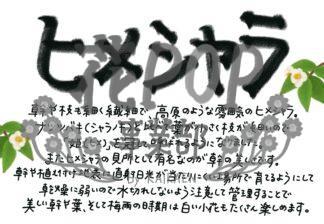 ヒメシャラ
幹や枝も細く繊細で、高原のような雰囲気のヒメシャラ。
ナツツバキ(シャラノキ)と比べ葉が小さく枝が細いので
また、ヒメシャラの見所として有名なのが幹の美しさです。
幹や植え付け地表に直射日光が当たりにくい場所で育てるようにして
乾燥に弱いので水切れしないように注意して管理することで
美しい幹や葉、そして梅雨の時期は白い小花もたくさん楽しめます。
花POP